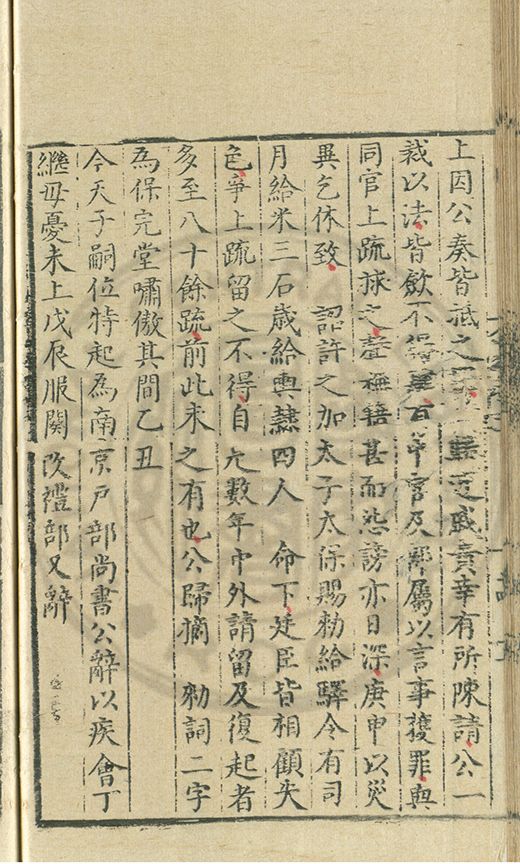 上因公奏皆抵之罪縣近戚貴幸有所陳請公一
裁以法皆歛不得肆百執事官及郡屬以言事獲罪與
同官上疏捄之聲稱籍甚而怨謗亦日深庚申以災
異乞休致 詔許之加太子太保賜勑給驛令有司
月給米三石歲給輿隸四人 命下廷臣皆相顧失
色爭上疏留之不得自尢數年中外請留及復起者
多至八十餘疏前此未之有也公歸摘 勑詞二字
為保完堂嘯傲其間乙丑
今天子嗣位特起為南京戶部尚書公辭以疾會丁
繼母憂未上戊辰服闋改禮部又辭